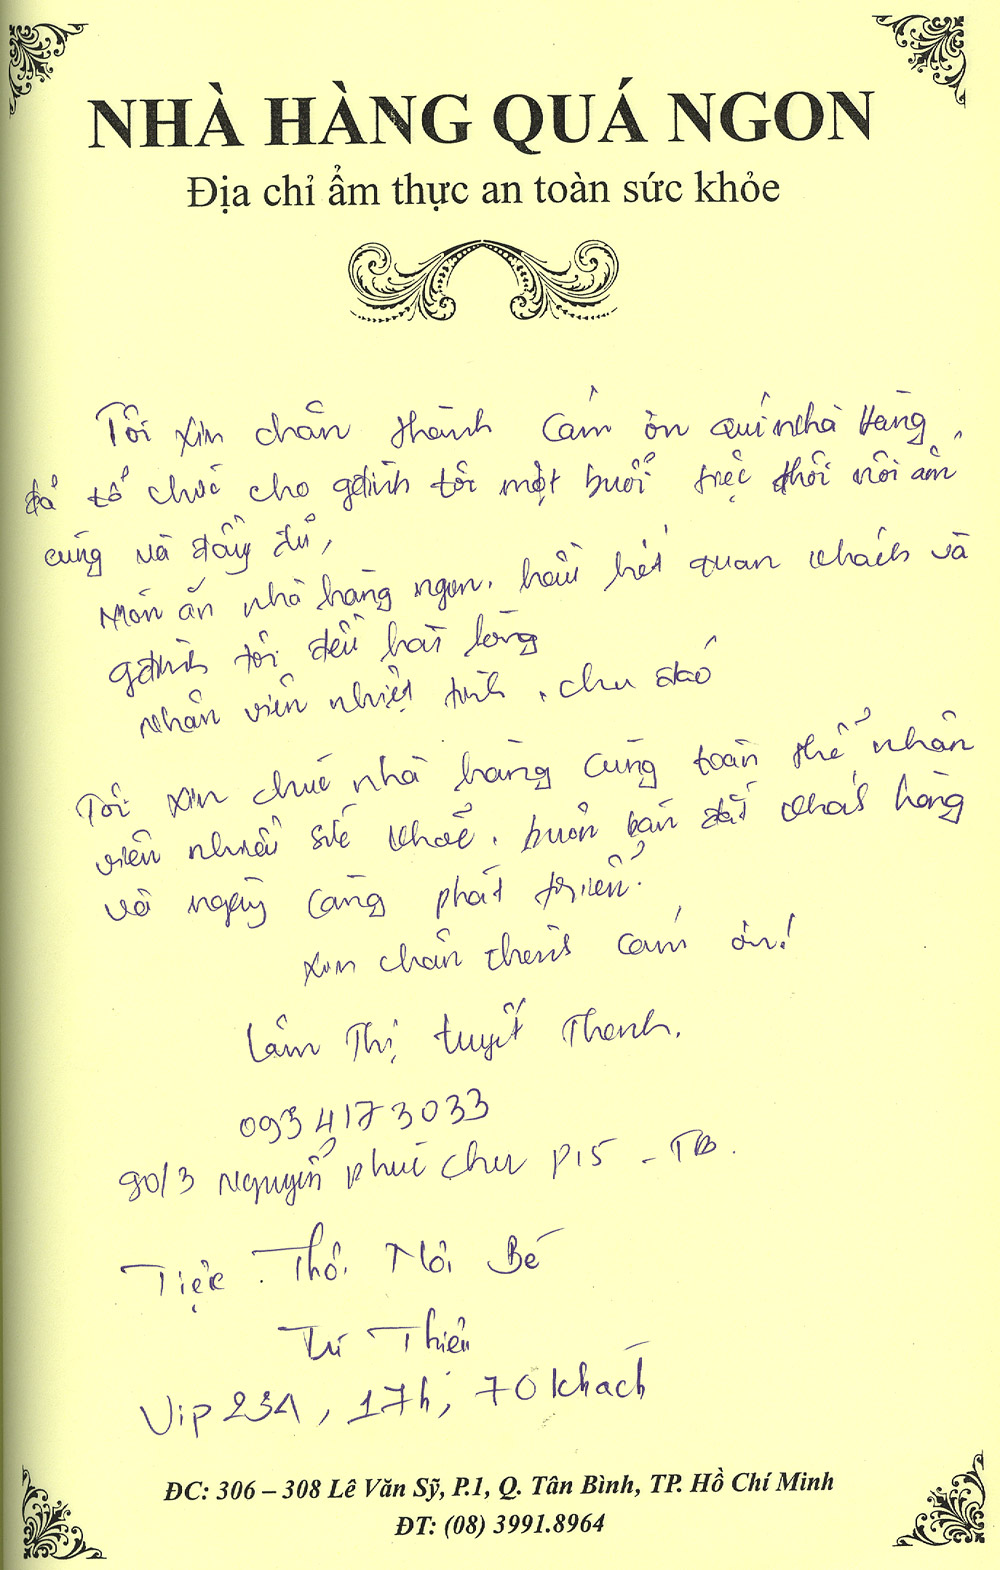 NHÀ HÀNG QUÁ NGON
Địa chỉ ẩm thực an toàn sức khỏe
Tôi xin chân thành cám ơn quí nhà hàng
đã tổ chức cho gđình tôi một buổi tiệc thôi nôi ấm
cúng và đầy đủ,
Món ăn nhà hàng ngon. hầu hết quan khách và
gđình tôi đều hài lòng
nhân viên nhiệt tình, chu đáo
Tôi xin chúc nhà hàng cùng toàn thể nhân
viên nhiều sức khoẻ, buôn bán đắt khách hàng
và ngày càng phát triển.
Xin chân thành cám ơn!
Lâm Thị Tuyết Thanh.
0934173033
90/3 Nguyễn phúc chu p15 - TB.
Tiệc Thôi Nôi Bé
Tú Thiên
Vip 23A, 17h, 70 khách
ĐC: 306 – 308 Lê Văn Sỹ, P.1, Q. Tân Bình, TP. Hồ Chí Minh
ĐT: (08) 3991.8964